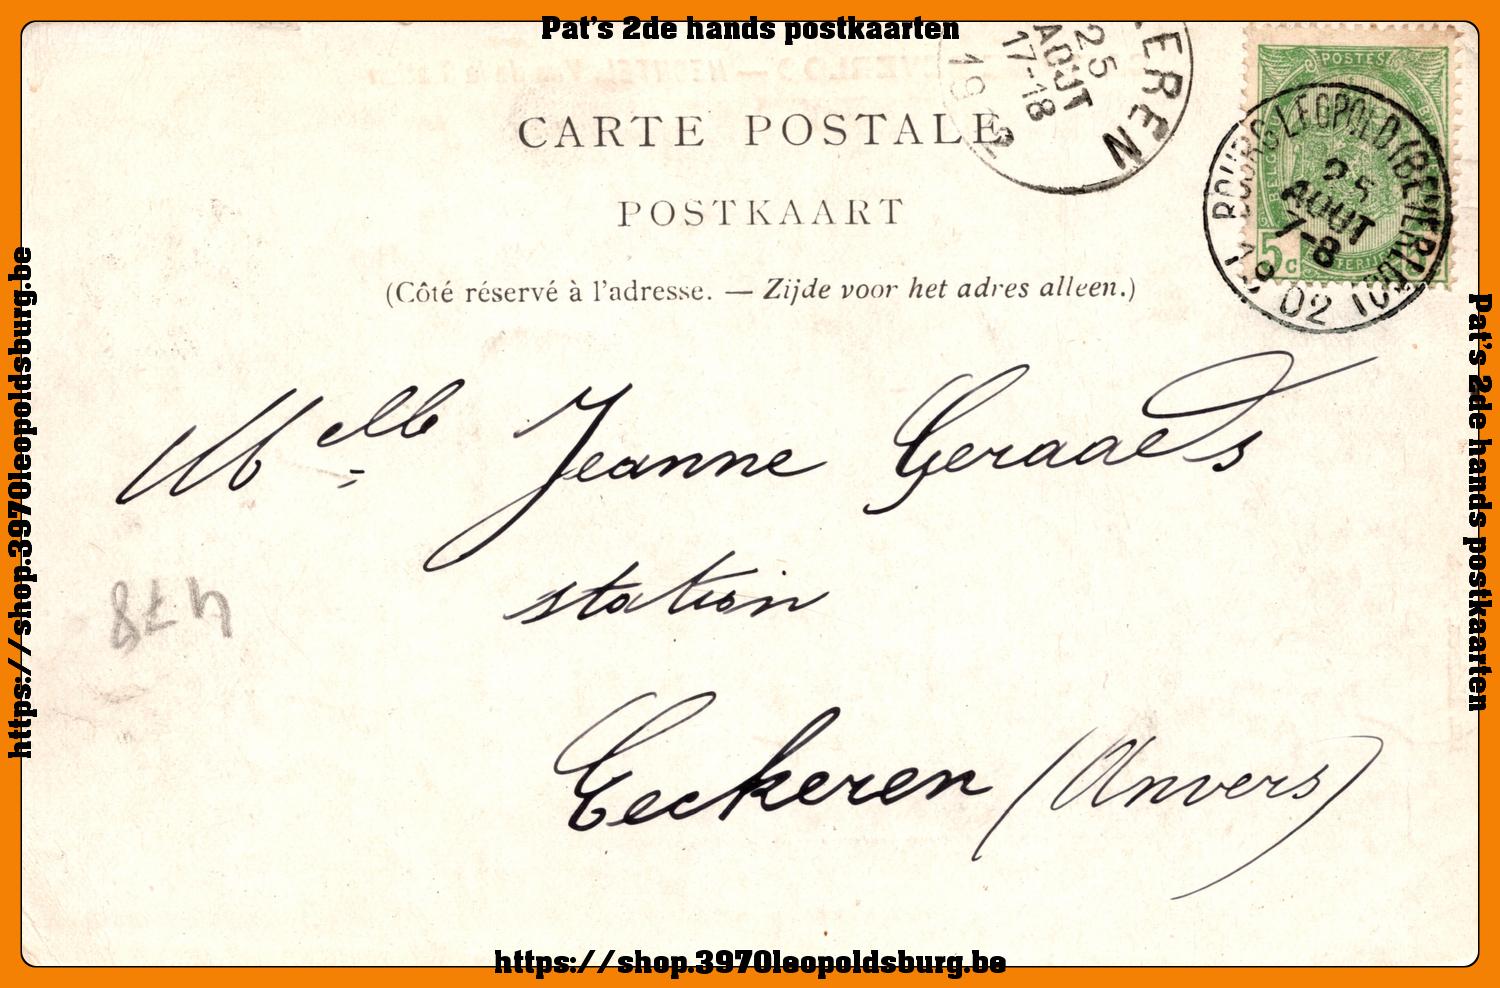 Pat's 2de hands postkaarten
EREN
25
AOUT
17-18
19 2
CARTE POSTALE
POSTKAART
(Côté réservé à l'adresse. — Zijde voor het adres alleen.)
POSTES
5c
BOURG-LEOPOLD (BEVERLOO)
25
AOUT
7-8
1902
Melle Jeanne Geraaets
station
Eeckeren (Anvers)
478
https://shop.3970leopoldsburg.be
Pat's 2de hands postkaarten
https://shop.3970leopoldsburg.be